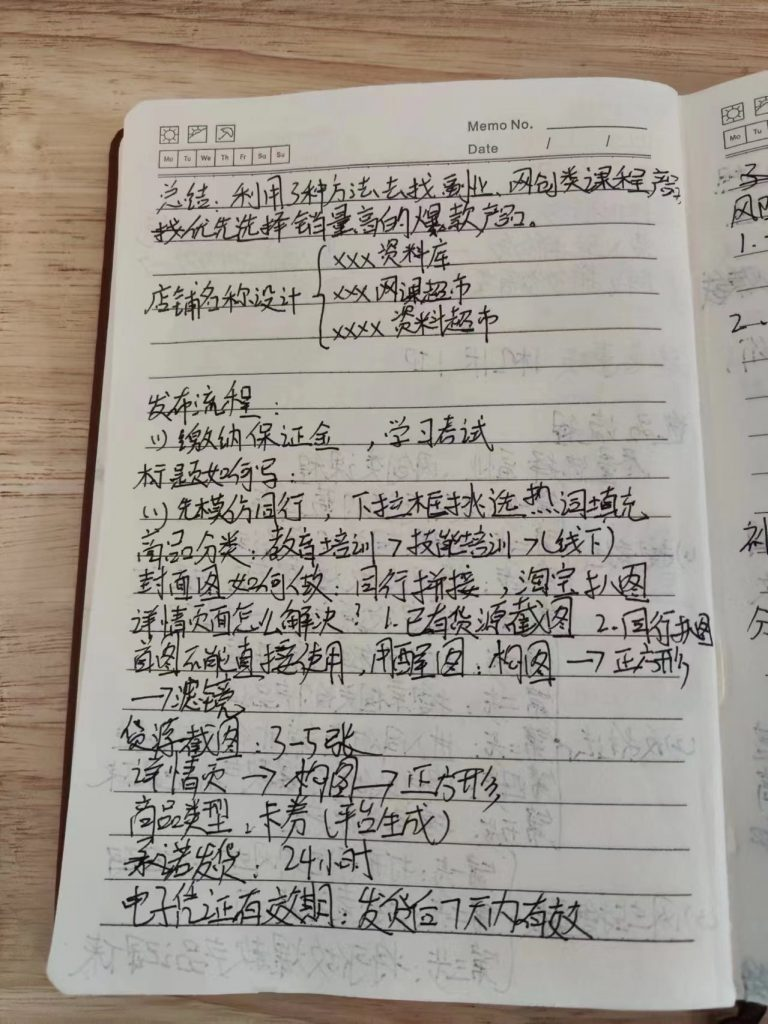 Memo No.
Date / /
Mo Tu We Th Fr Sa Su
总结：利用3种方法去找副业、网创类课程产品，
找优先选择销量高的爆款产品。
店铺名称设计
xxx资料库
xxx网课超市
xxxx 资料超市
发布流程：
(1)缴纳保证金，学习考试
标题如何写：
(1)先模仿同行，下拉框挑选热词填充
商品分类：教育培训>技能培训>(线下)
封面图如何做：同行拼接，淘宝扒图
详情页面怎么解决？1.已有货源截图 2.同行扒图
首图不能直接使用，用醒图：构图→正方形
→滤镜
货源截图：3-5张
详情页→构图→正方形
商品类型：卡券(平台生成)
承诺发货：24小时
电子凭证有效期：发货后7天内有效
Mo Tu
风
1.
2.
补
分